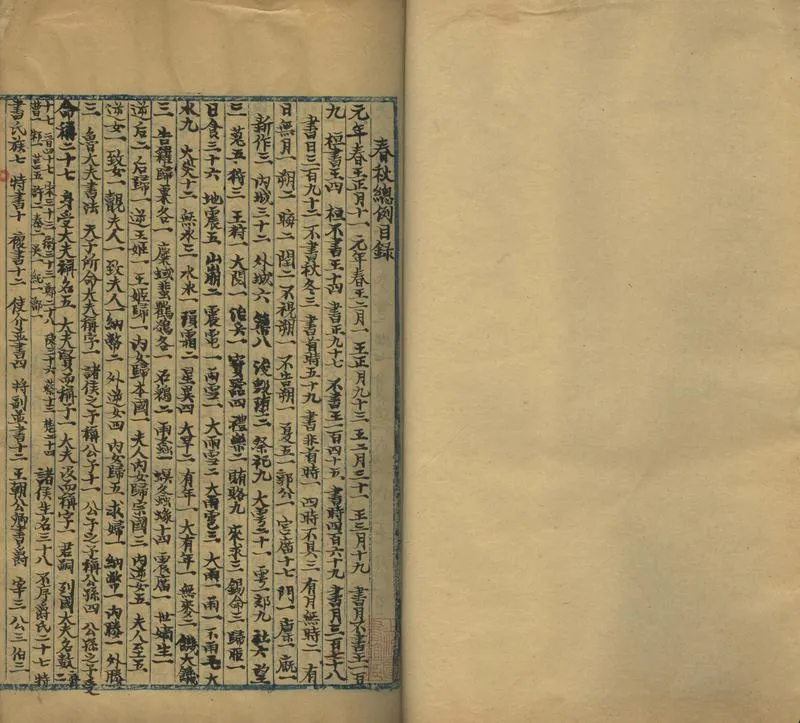 春秋總例目錄
元年春王正月十一 元年春王二月一 王正月九十三 王二月二十一 王三月十九 書月不書王一百
九 桓書王四 桓不書王十四 書正九十七 不書王一百四十五 書時四百六十九 書月三百七十八
書日三百九十二 不書秋冬三 書首時五十九 書非首時一 四時不具三 有月無時二 有
日無月一 朔二 晦二 閏二 不視朔一 不告朔一 夏五一 郭公一 宮廟十七 門一 廩一 廐一
新作三 內城二十二 外城六 築八 浚毀墮三 祭祀九 大雩二十一 雩郊九 社六 望
三 蒐五 狩三 王狩一 大閱一 治兵一 寶器四 禮樂二 賄賂九 來求三 錫命三 歸脤一
日食三十六 地震五 山崩二 震電一 雨雪一 大雨雪二 大雨雹三 大雨一 雨一 不雨七 大
水九 火災十二 無冰三 木冰一 隕霜二 星異四 大旱二 有年一 大有年一 無麥二 饑大饑
三 告糴歸粟各一 麋蜮蜚鸜鵒各一 石鷁二 雨螽一 螟冬螽蝝十四 震廟一 世嫡生一
逆后二 后歸一 逆王姬一 王姬歸一 內女歸本國一 夫人內女歸宗國三 內逆女五 夫人至五
逆女一 致女一 覿夫人一 致夫人一 納幣二 外逆女四 內女歸五 求婦一 納幣一 內媵一 外媵
三 魯大夫書法 天子所命大夫稱字一 諸侯之子稱公子十一 公子之子稱公孫四 公孫之子受
命稱二十七 身受大夫稱名五 大夫賢而稱字一 大夫沒而稱字一 君嗣 列國大夫名數二
諸侯生名三十八 不序爵氏二十七 特
書氏族七 特書十 褒書十二 使介並書四 將副並書十二 王朝公卿書爵 宰三 公三 伯三